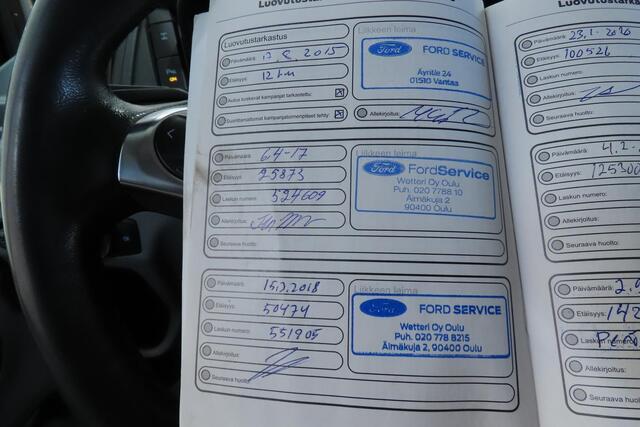 Luovutustarkastus
Päivämäärä:
Etäisyys: 12 km
Autoa koskevat kampanjat tarkastettu:
Suorittamattomat kampanjatoimenpiteet tehty:
Liikkeen leima
Ford FORD SERVICE
Äyritie 24
01510 Vantaa
Allekirjoitus:
Päivämäärä: 6.4-17
Etäisyys: 25873
Laskun numero: 524609
Allekirjoitus:
Seuraava huolto:
Liikkeen leima
Ford FordService
Wetteri Oy Oulu
Puh. 020 7788 10
Äimäkuja 2
90400 Oulu
Päivämäärä: 15.2.2018
Etäisyys: 50474
Laskun numero: 551905
Allekirjoitus:
Seuraava huolto:
Liikkeen leima
Ford FORD SERVICE
Wetteri Oy Oulu
Puh. 020 778 8215
Äimäkuja 2, 90400 Oulu
Päivämäärä: 23.1.2020
Etäisyys: 100526
Laskun numero:
Allekirjoitus:
Seuraava huolto:
Päivämäärä: 4.2.
Etäisyys: 125300
Laskun numero:
Allekirjoitus:
Seuraava huolto:
Päivämäärä: 2.9
Etäisyys: 142
Laskun numero:
Allekirjoitus:
Seuraava huol